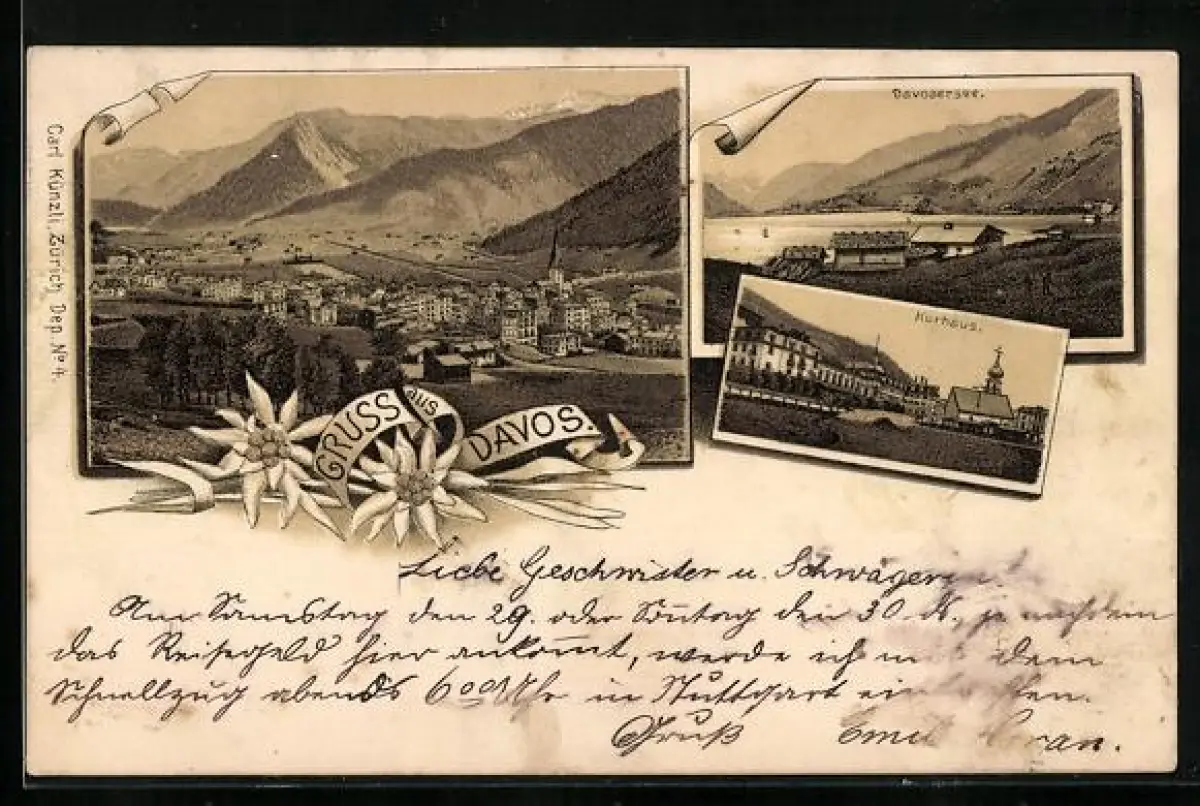 Carl Künzli, Zürich, Dep. No 4.
Davosersee.
Kurhaus.
GRUSS aus
DAVOS.
Liebe Geschwister u. Schwägerin!
Am Samstag den 29. oder Sonntag den 30. ds. je nachdem
das Reisegeld hier ankommt, werde ich mit dem
Schnellzug abends Uhr in Stuttgart eintreffen.
Gruß Emil